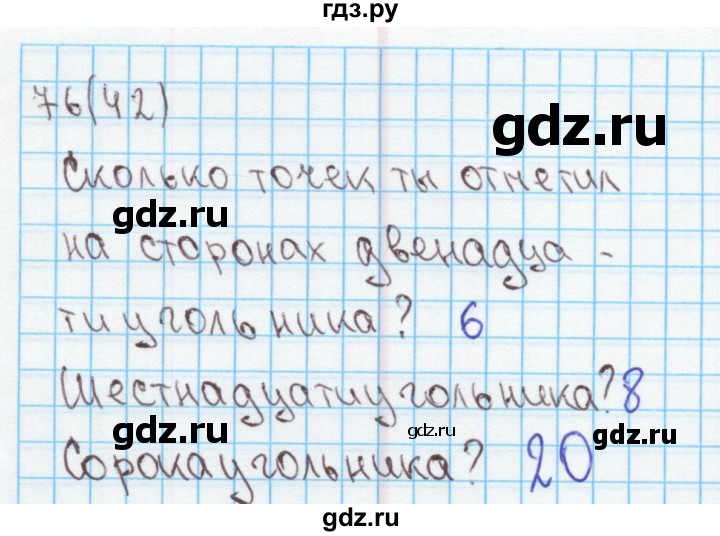 гдз.ру
76(42)
gdz.ru
Сколько точек ты отметил
gdz.ru
на сторонах двенадца -
тиугольника? 6
Шестнадцатиугольника? 8
gdz.ru gdz.ru gdz.ru
Сорокаугольника? 20
gdz.ru